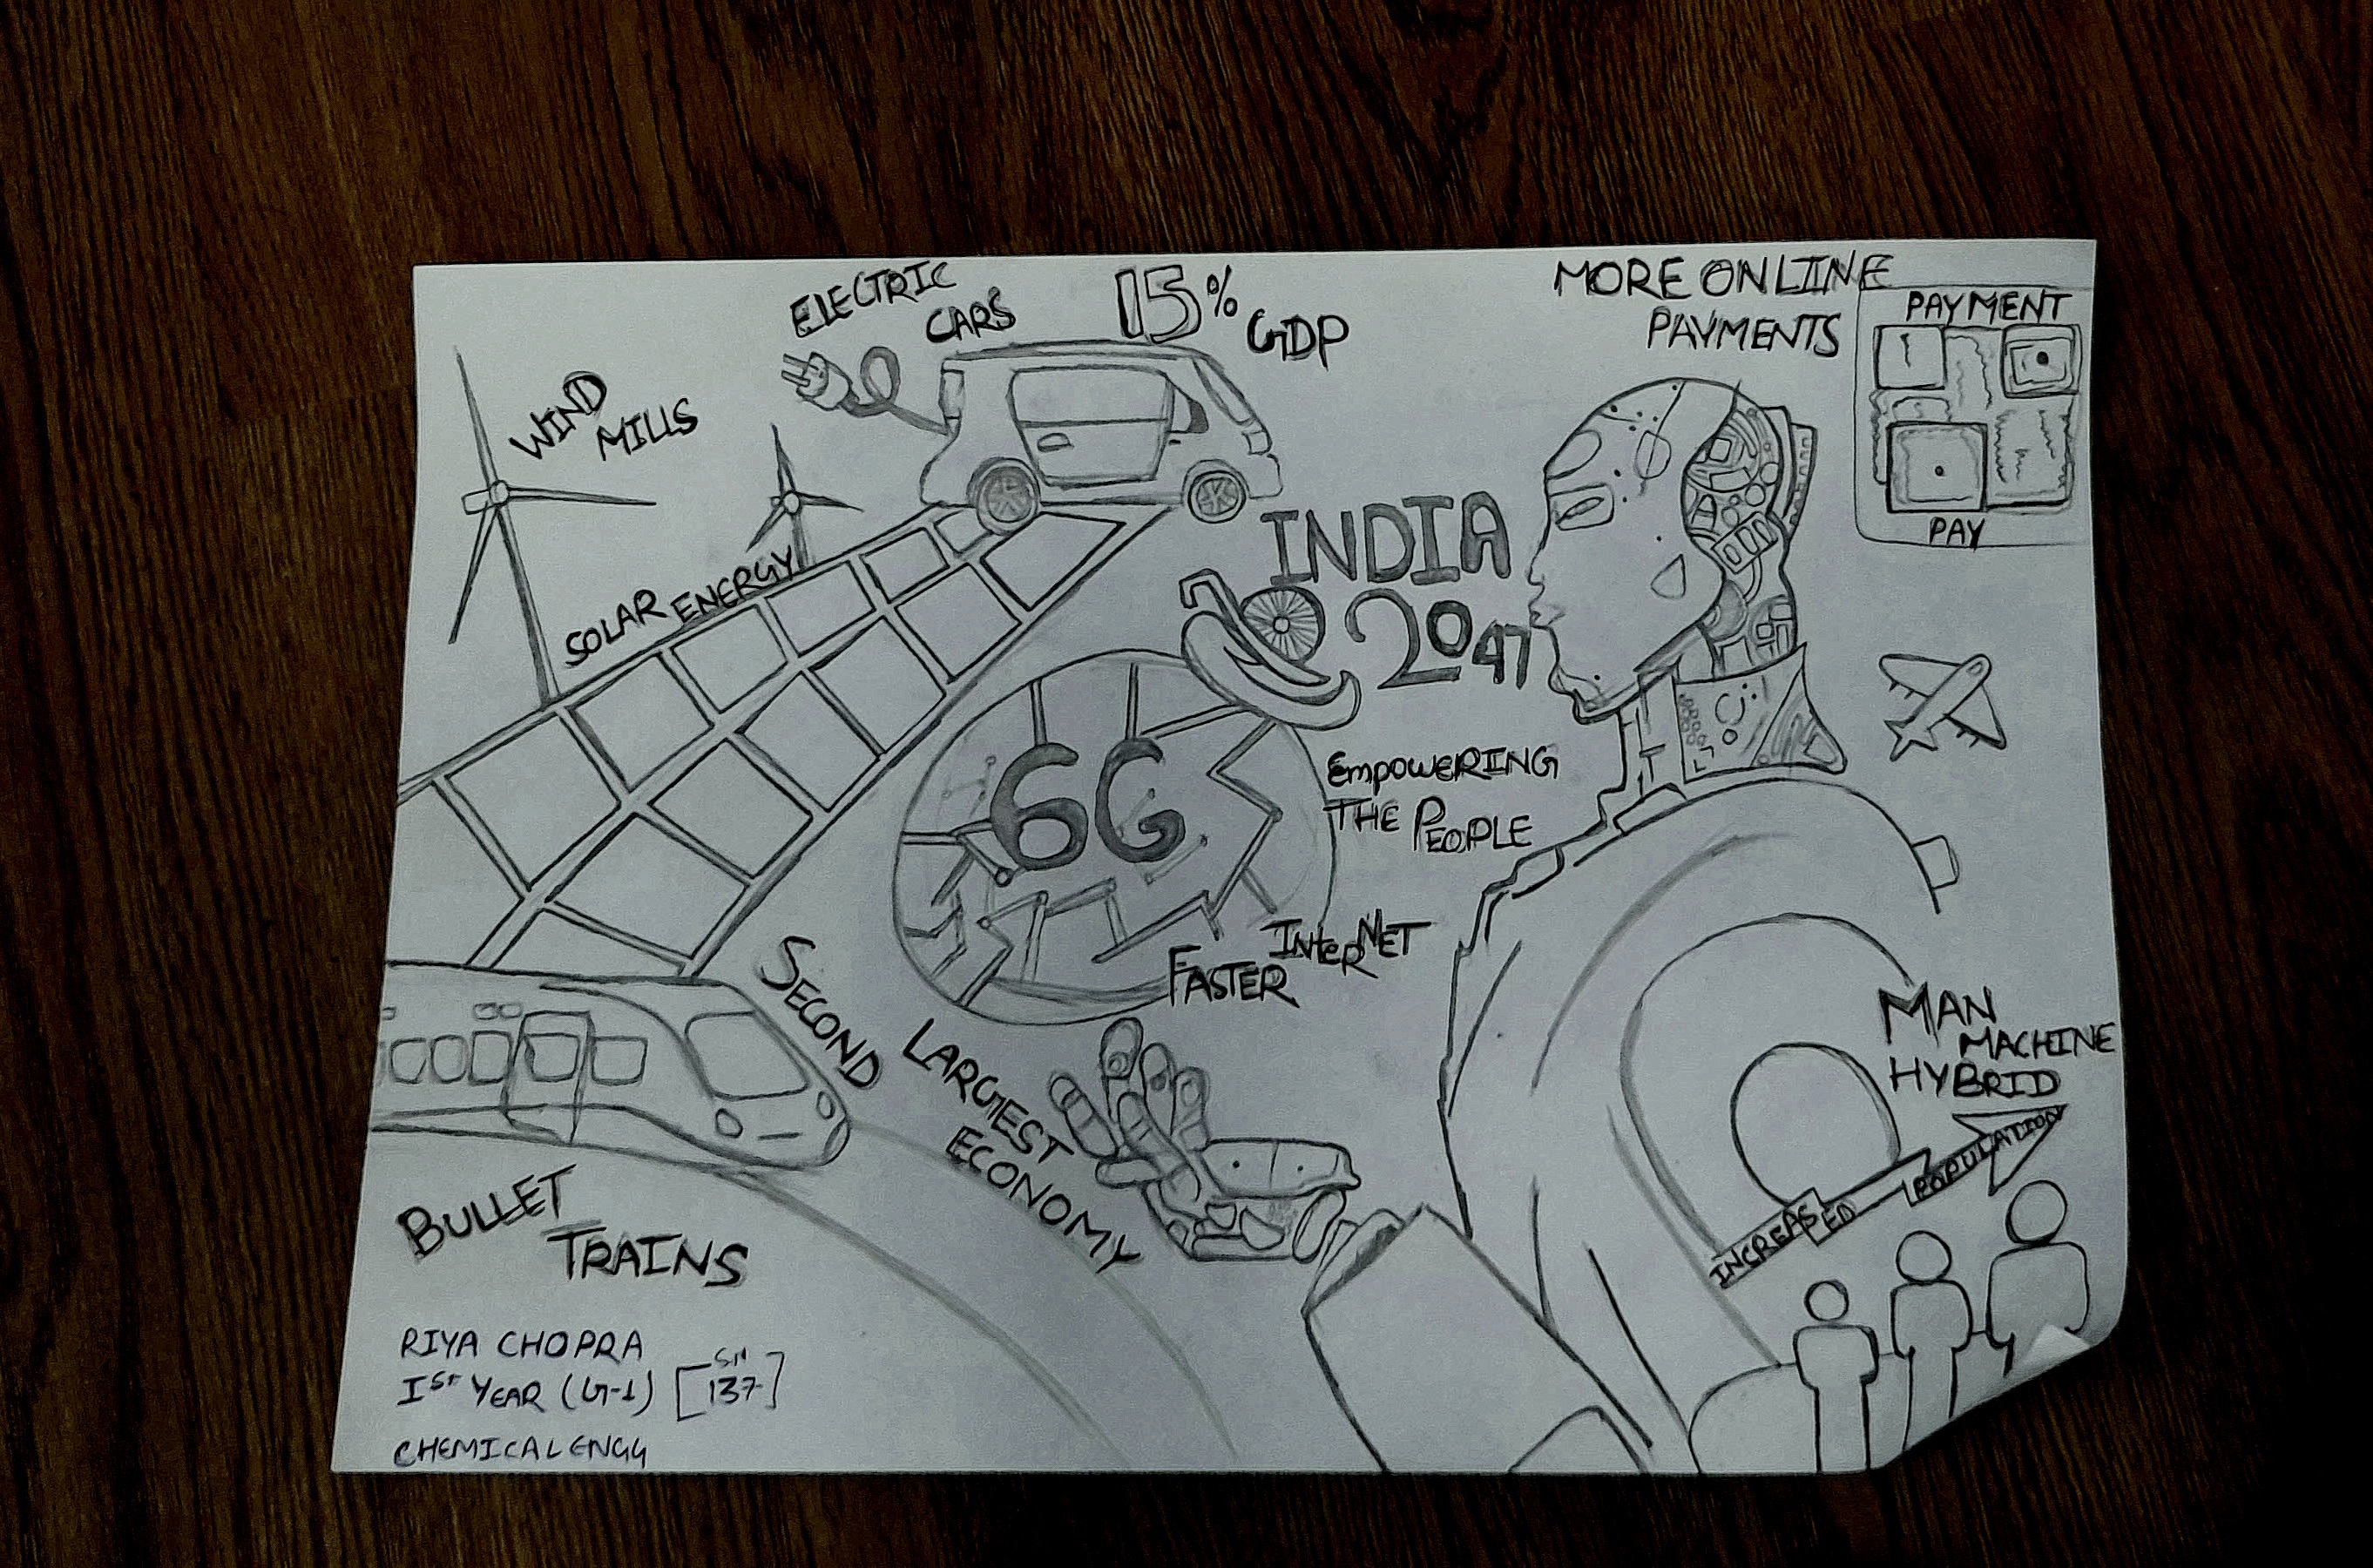 ELECTRIC
CARS
15% GDP
MORE ONLINE
PAYMENTS
PAYMENT
PAY
WIND
MILLS
SOLAR ENERGY
INDIA
2047
6G
EmpOWERING
THE PEOPLE
FASTER INteRNET
SECOND
LARGEST
ECONOMY
MAN
MACHINE
HYBRID
INCREASED POPULATION
BULLET
TRAINS
RIYA CHOPRA
Ist YEAR (G-1) [SN 137]
CHEMICAL ENGG